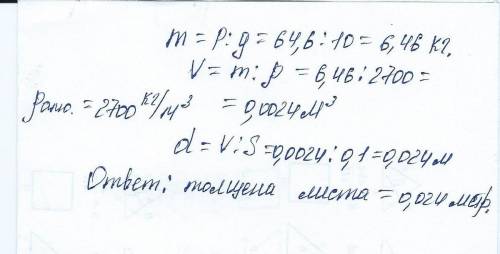 m = P : g = 64,6 : 10 = 6,46 кг.
V = m : ρ = 6,46 : 2700 =
ρалю. = 2700 кг/м³ = 0,0024 м³
d = V : S = 0,0024 : 0,1 = 0,024 м
Ответ: толщена листа = 0,024 метр.